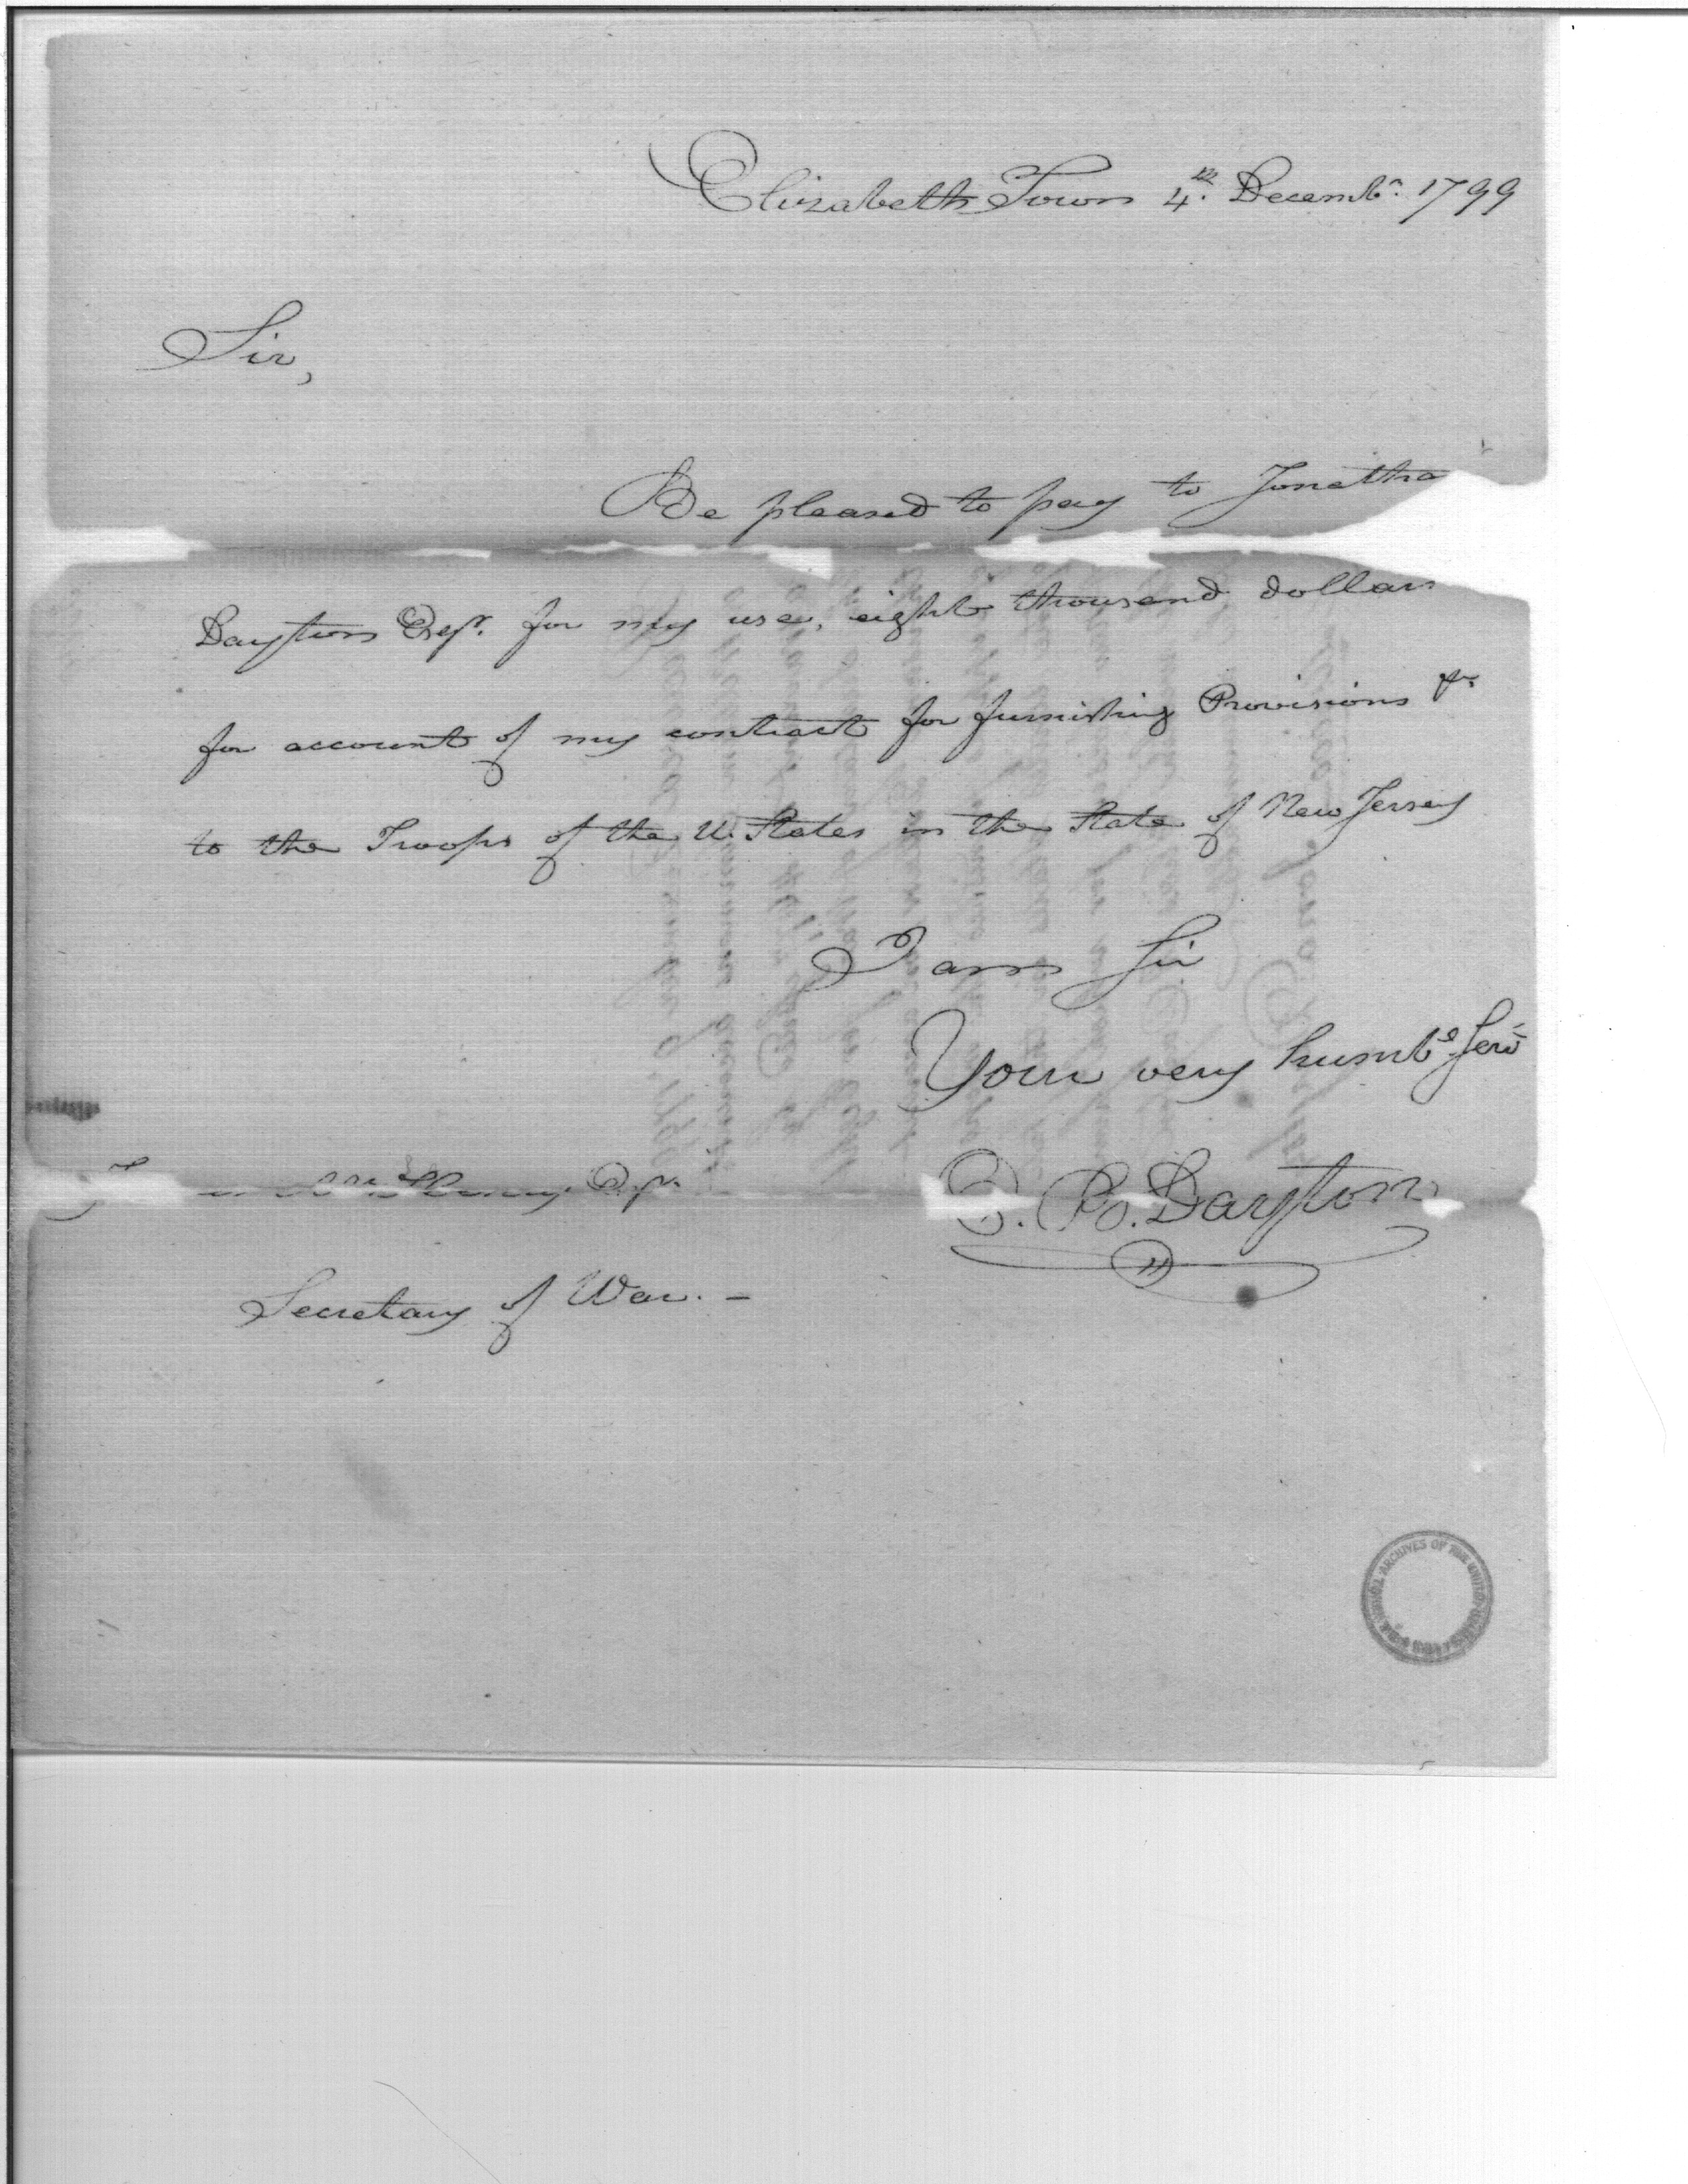 Elizabeth Town 4.th Decembr. 1799
Sir,
Be pleased to pay to Jonatha
Dayton Esqr. for my use, eight thousand dollars
for account of my contract for furnishing Provisions &c.
to the Troops of the U. States in the State of New Jersey
I am Sir
Your very humble Servt
McHenry Esqr.
B. Dayton
Secretary of War. –
ARCHIVES OF THE UNITED